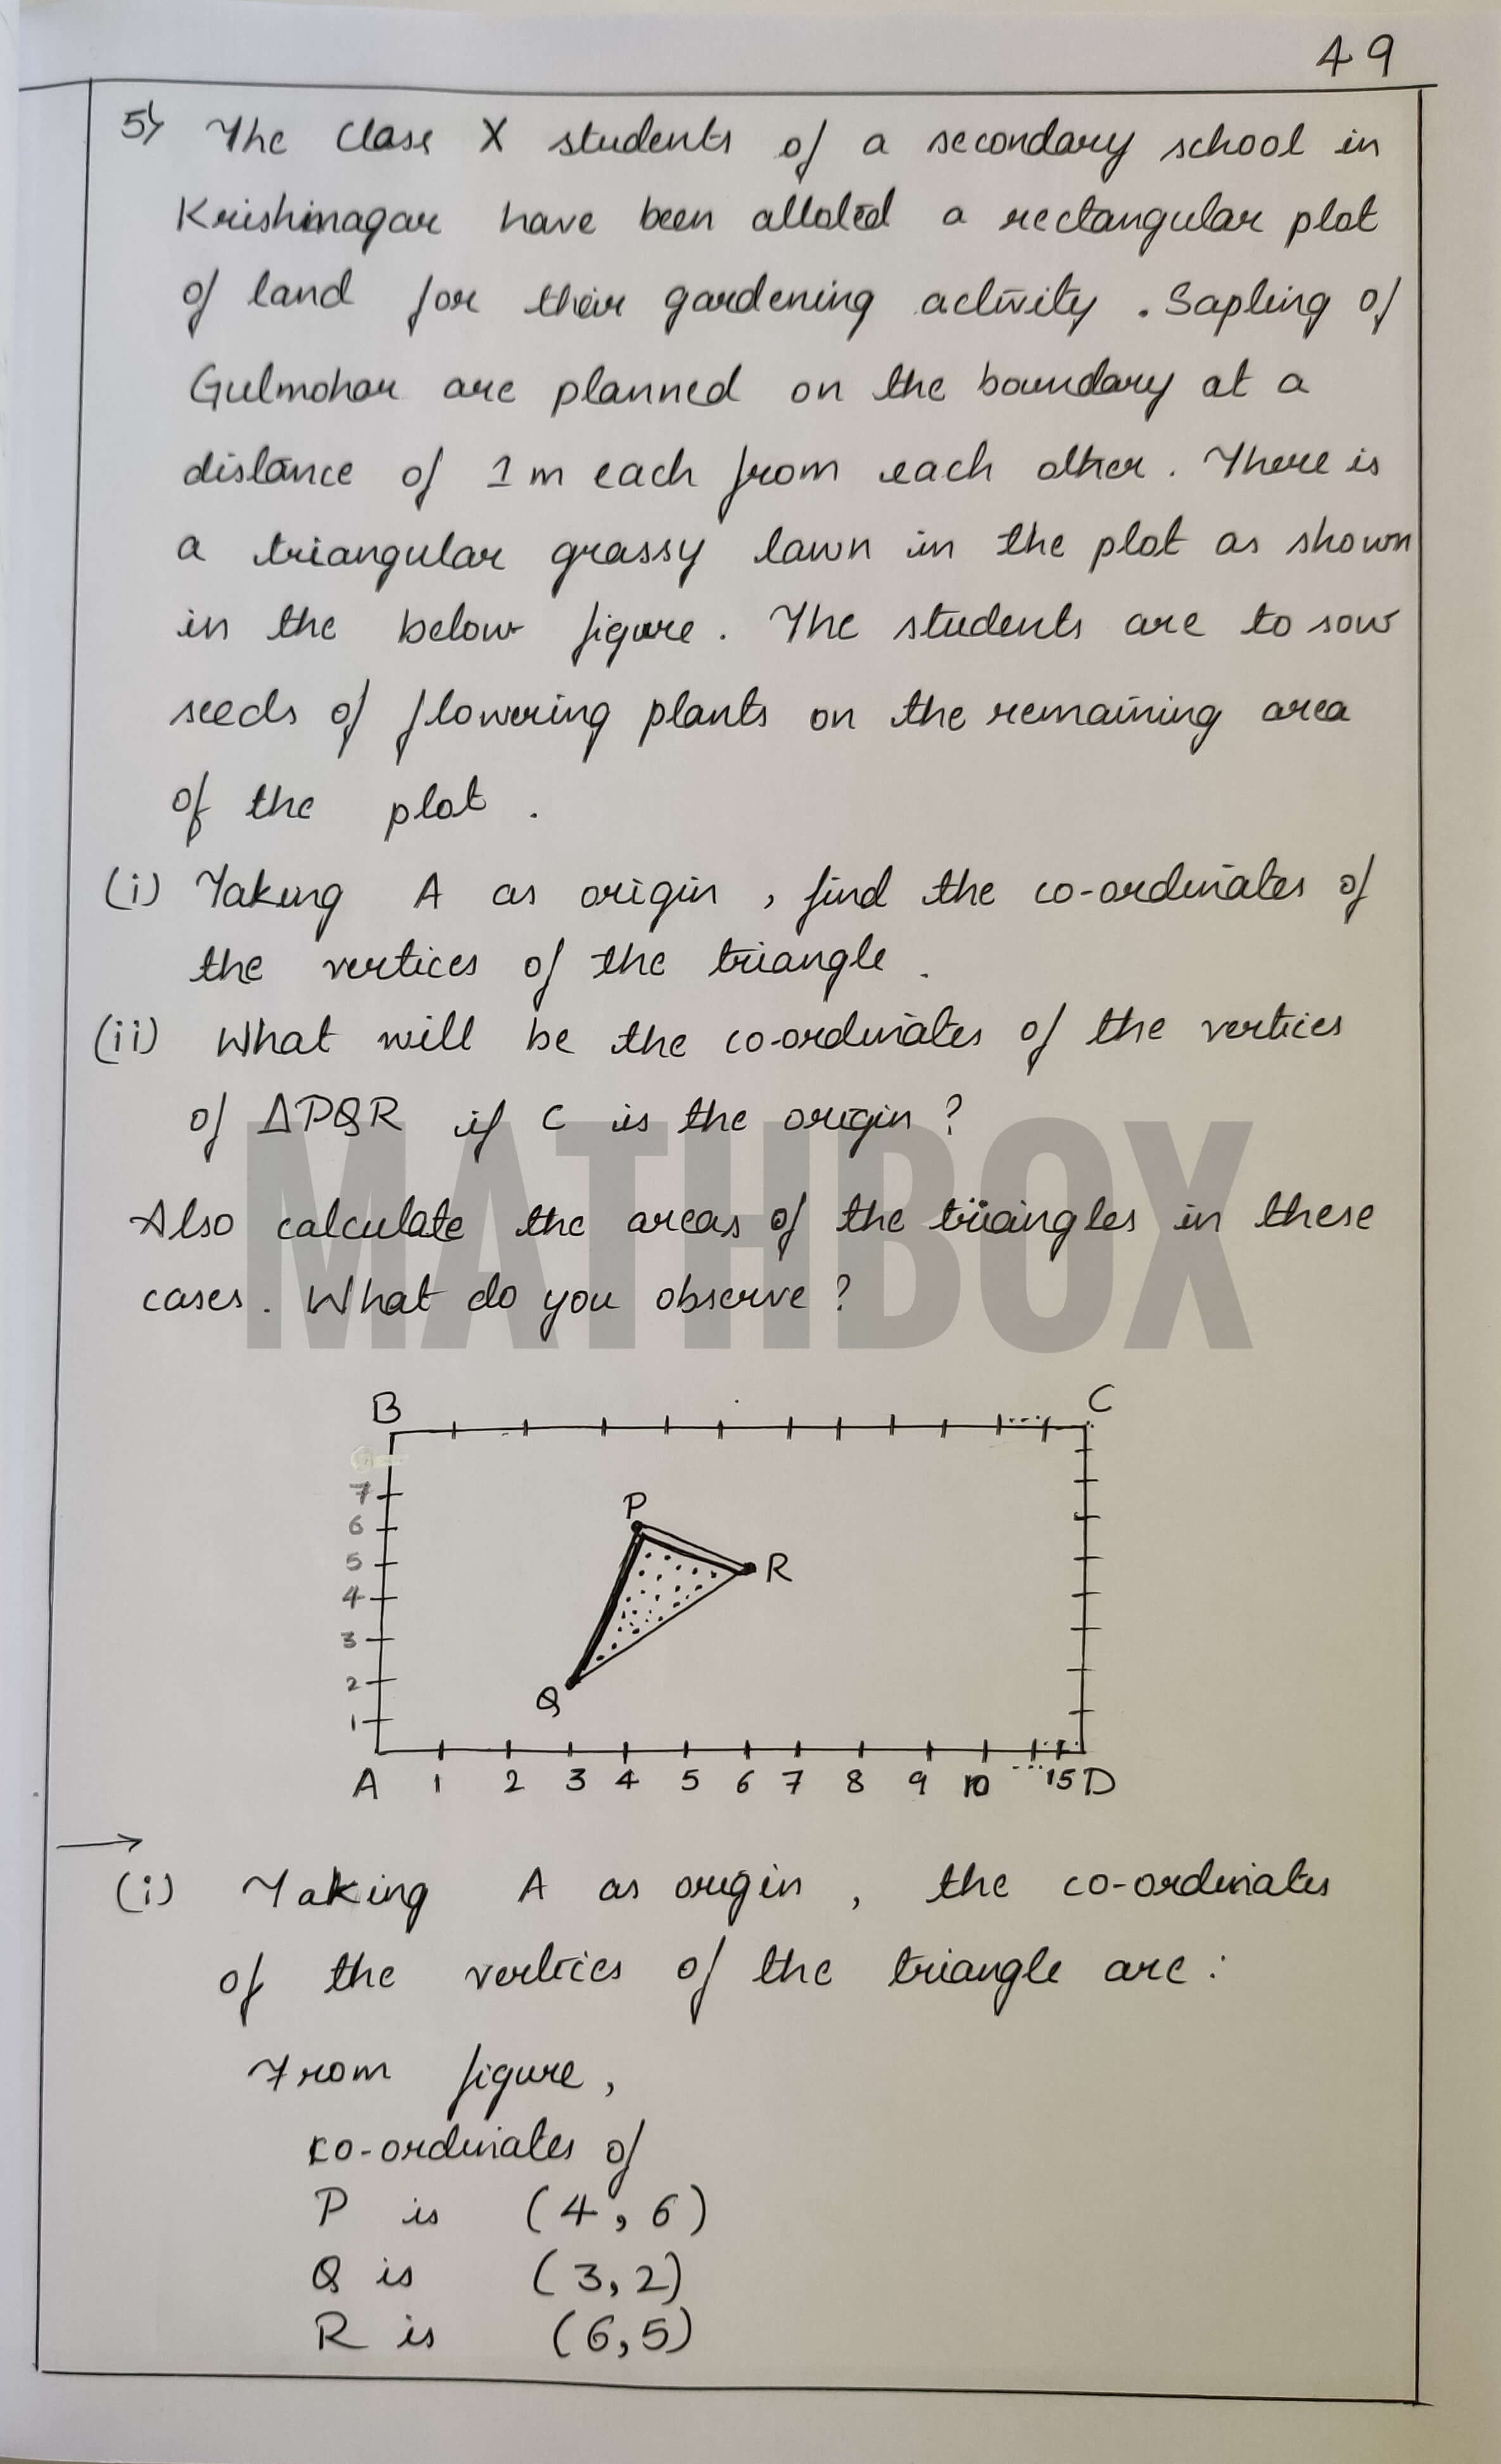 49
5) The Class X students of a secondary school in
Krishinagar have been alloted a rectangular plot
of land for their gardening activity. Sapling of
Gulmohar are planned on the boundary at a
distance of 1m each from each other. There is
a triangular grassy lawn in the plot as shown
in the below figure. The students are to sow
seeds of flowering plants on the remaining area
of the plot.
(i) Taking A as origin, find the co-ordinates of
the vertices of the triangle.
(ii) What will be the co-ordinates of the vertices
of ΔPQR if C is the origin?
Also calculate the areas of the triangles in these
cases. What do you observe?
MATHBOX
B C
7
6
5
4
3
2
1
P
R
Q
A 1 2 3 4 5 6 7 8 9 10 ... 15 D
→
(i) Taking A as origin, the co-ordinates
of the vertices of the triangle are:
From figure,
co-ordinates of
P is (4,6)
Q is (3,2)
R is (6,5)